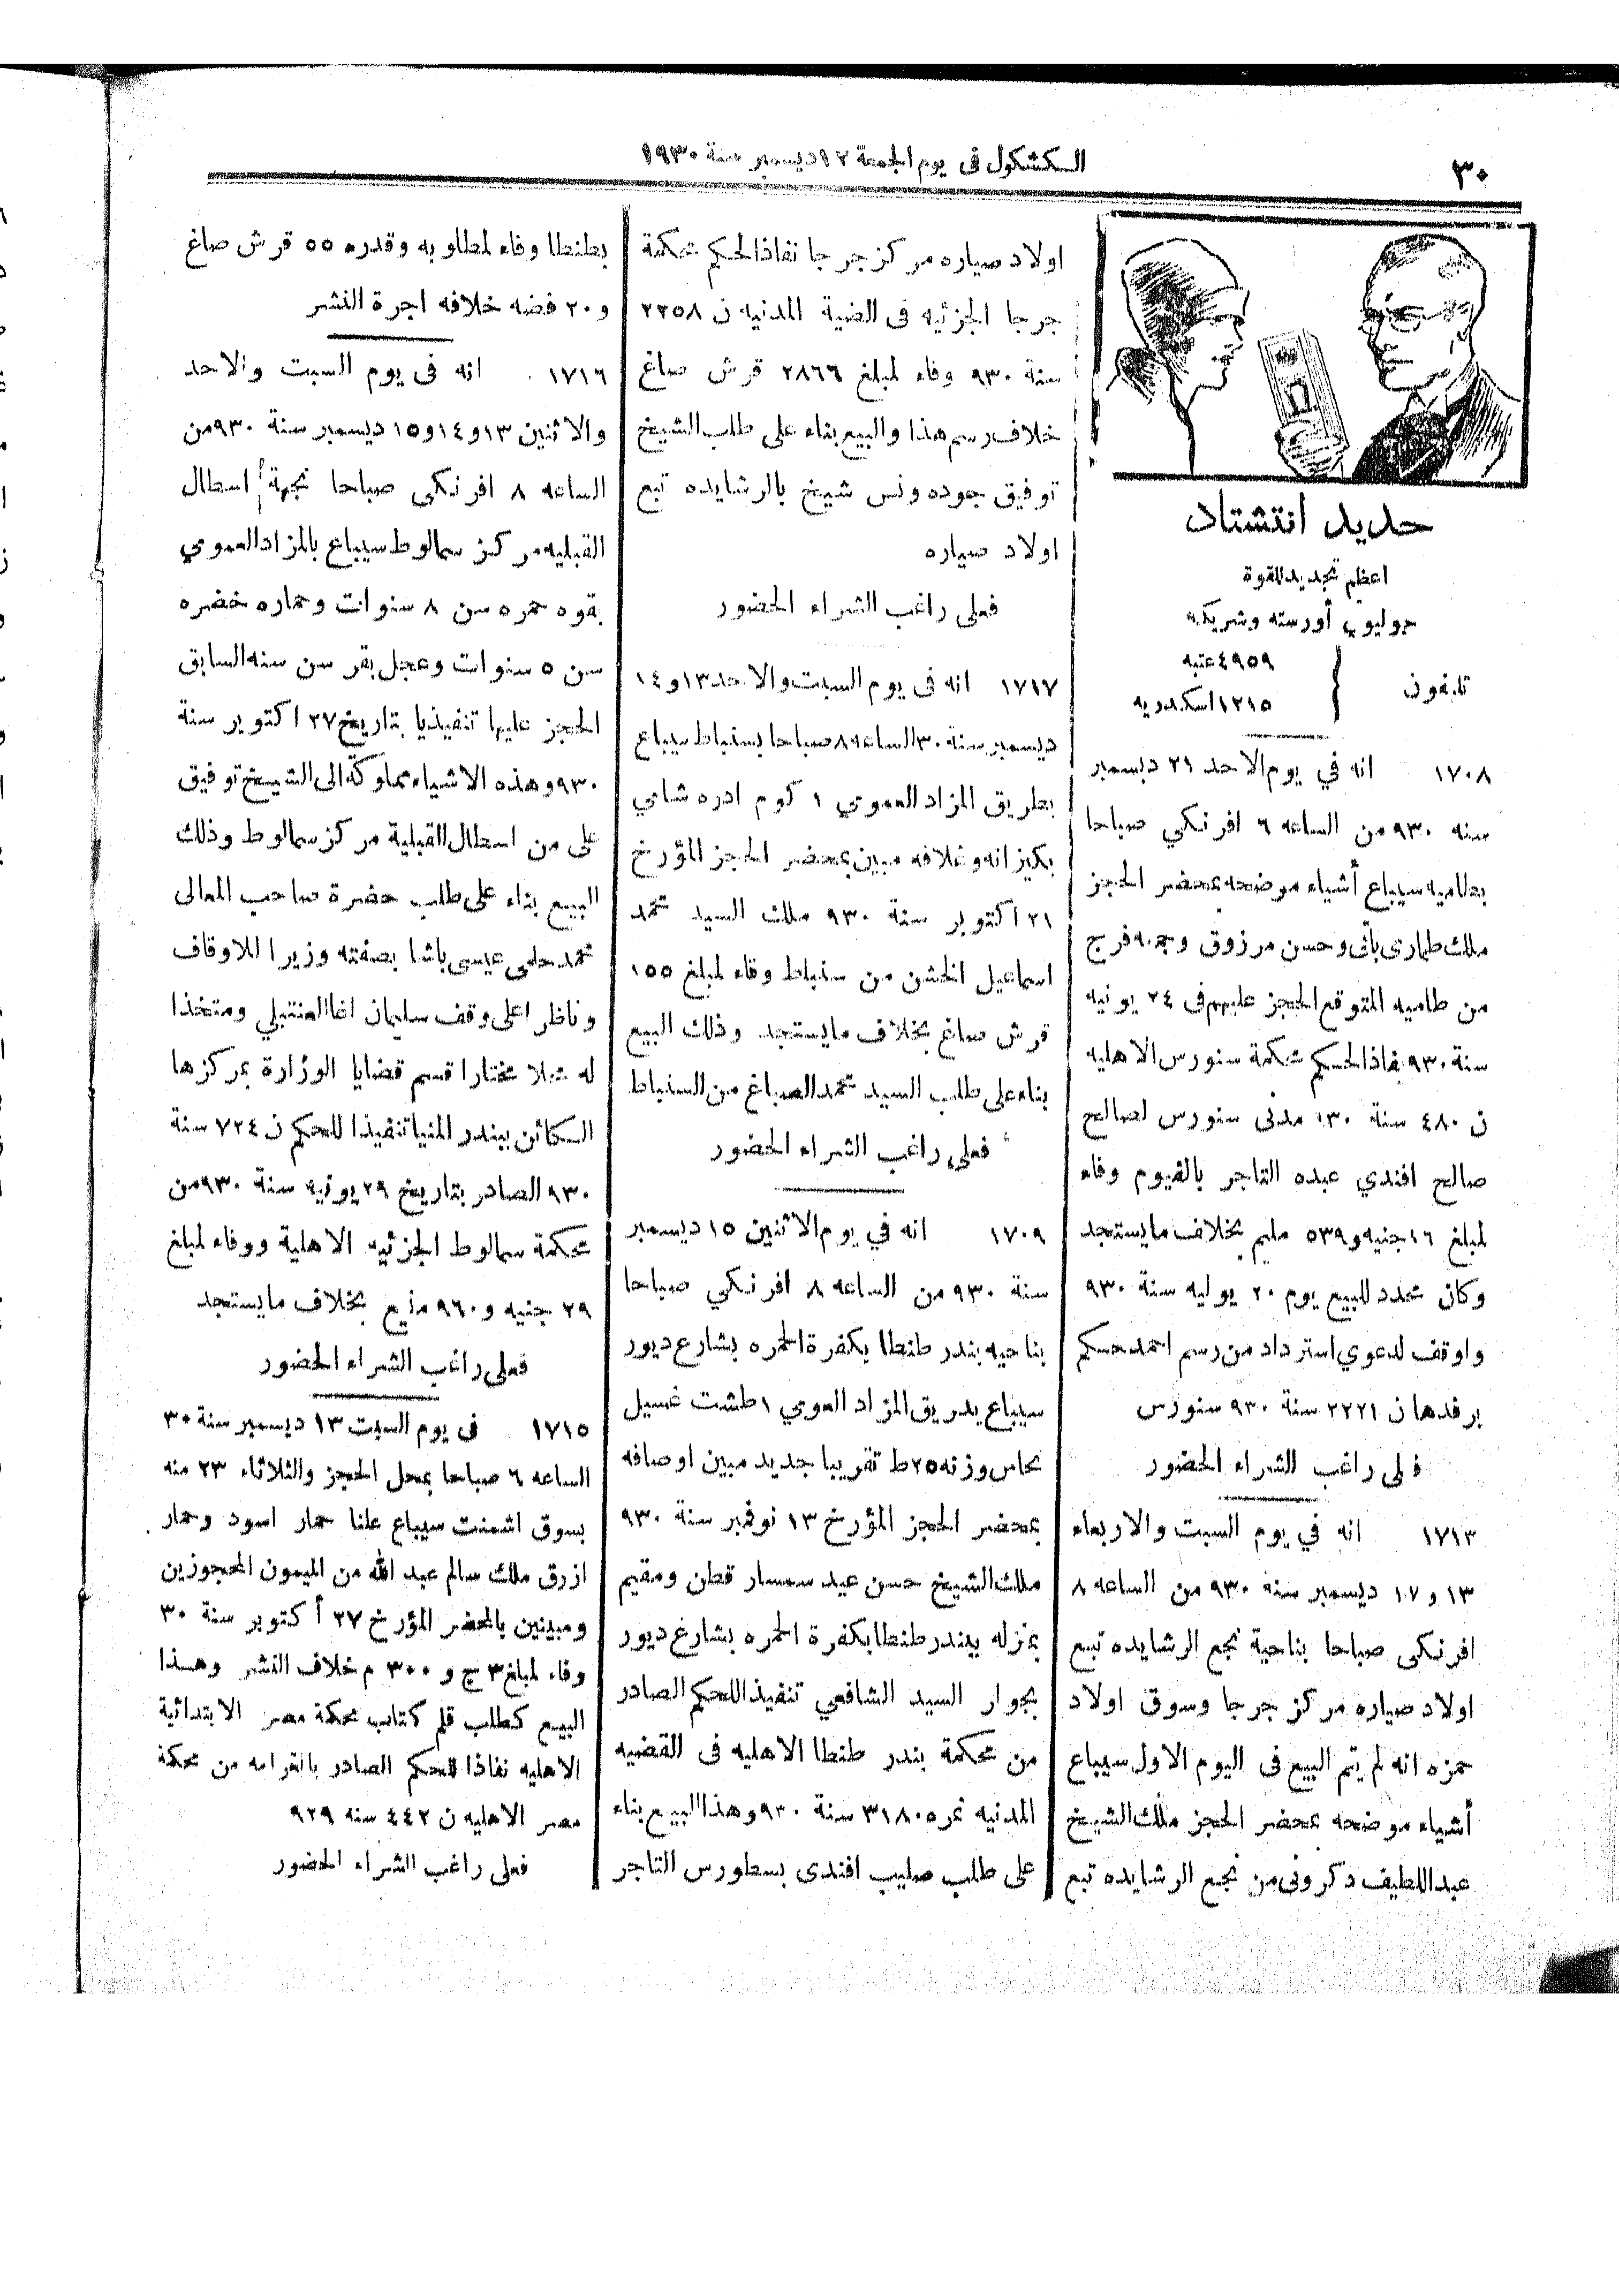 ٣٠
الكشكول فى يوم الجمعة ١٢ ديسمبر سنة ١٩٣٠
حديد انتشتاد
اعظم تجديد للقوة
جوليوس أورسته وشريكه
تليفون
٤٩٥٩ عتبه
١٢١٥ اسكندريه
١٧٠٨ انه في يوم الاحد ٢١ ديسمبر
سنه ٩٣٠ من الساعه ٦ افرنكي صباحا
بطاميه سيباع أشياء موضحه بمحضر الحجز
ملك طمارى باشى وحسن مرزوق وجمعه فرج
من طاميه المتوقع الحجز عليهم فى ٢٤ يونيه
سنة ٩٣٠ نفاذا لحكم محكمة سنورس الاهليه
ن ٤٨٠ سنة ٩٣٠ مدنى سنورس لصالح
صالح افندي عبده التاجر بالفيوم وفاء
لمبلغ ١٦ جنيه و٥٣٩ مليم بخلاف مايستجد
وكان محدد للبيع يوم ٢٠ يوليه سنة ٩٣٠
واوقف لدعوي استرداد من رسم احمد حسكم
برفدها ن ٢٢٢١ سنة ٩٣٠ سنورس
فعلى راغب الشراء الحضور
١٧١٣ انه في يوم السبت والاربعاء
١٣ و ١٧ ديسمبر سنه ٩٣٠ من الساعه ٨
افرنكى صباحا بناحية نجع الرشايده تبع
اولاد صياره مركز جرجا وسوق اولاد
حمزه انه لم يتم البيع فى اليوم الاول سيباع
أشياء موضحه بمحضر الحجز ملك الشيخ
عبد اللطيف دكرونى من نجع الرشايده تبع
اولاد صياره مركز جرجا نفاذا لحكم محكمة
جرجا الجزئيه فى القضية المدنيه ن ٢٢٥٨
سنة ٩٣٠ وفاء لمبلغ ٢٨٦٦ قرش صاغ
خلاف رسم هذا والبيع بناء على طلب الشيخ
توفيق جوده ونس شيخ بالرشايده تبع
اولاد صياره
فعلى راغب الشراء الحضور
١٧١٧ انه فى يوم السبت والاحد ١٣ و ١٤
ديسمبر سنة ٣٠ الساعه ٨ صباحا بسنباط سيباع
بطريق المزاد العموي ١ كوم ادره شامي
بكيزانه وغلافه مبين بمحضر الحجز المؤرخ
٢١ اكتوبر سنة ٩٣٠ ملك السيد محمد
اسماعيل الخشن من سنباط وفاء لمبلغ ١٥٥
قرش صاغ بخلاف مايستجد وذلك البيع
بناء على طلب السيد محمد الصباغ من السنباط
فعلي راغب الشراء الحضور
١٧٠٩ انه في يوم الاثنين ١٥ ديسمبر
سنة ٩٣٠ من الساعه ٨ افرنكي صباحا
بناحيه بندر طنطا بكفرة الحمره بشارع ديور
سيباع بدريق المزاد العومي ١ طشت غسيل
نحاس وزنه ٢٥ ط تقريبا جديد مبين اوصافه
بمحضر الحجز المؤرخ ١٣ نوفمبر سنة ٩٣٠
ملك الشيخ حسن عيد سمسار قطن ومقيم
بمنزله ببندر طنطا بكفرة الحمره بشارع ديور
بجوار السيد الشافعي تنفيذا للحكم الصادر
من محكمة بندر طنطا الاهليه فى القضيه
المدنيه نمر ٣١٨٠٥ سنة ٩٣٠ وهذا البيع بناء
على طلب صليب افندى بسطورس التاجر
بطنطا وفاء لمطلوبه وقدره ٥٥ قرش صاغ
و ٢٠ فضه خلافه اجرة النشر
١٧١٦ انه فى يوم السبت والاحد
والاثنين ١٣ و١٤ و١٥ ديسمبر سنة ٩٣٠ من
الساعه ٨ افرنكى صباحا بجهة اسطال
القبليه مركز سمالوط سيباع بالمزاد العموي
بقوه حمره سن ٨ سنوات وحماره خضره
سن ٥ سنوات وعجل بقر سن سنه السابق
الحجز عليها تنفيذيا بتاريخ ٢٧ اكتوبر سنة
٩٣٠ وهذه الاشياء مملوكة الى الشيخ توفيق
على من اسطال القبلية مركز سمالوط وذلك
البيع بناء على طلب حضرة صاحب المعالى
محمد حلمى عيسى باشا بصفته وزيرا للاوقاف
وناظرا على وقف سليمان اغا المنتبلي ومتخذا
له محلا مختارا قسم قضايا الوزارة بمركزها
الكائن ببندر المنيا تنفيذا للحكم ن ٧٢٤ سنة
٩٣٠ الصادر بتاريخ ٢٩ يونيه سنة ٩٣٠ من
محكمة سمالوط الجزئيه الاهلية ووفاء لمبلغ
٢٩ جنيه و ٩٦٠ مليم بخلاف مايستجد
فعلى راغب الشراء الحضور
١٧١٥ فى يوم السبت ١٣ ديسمبر سنة ٣٠
الساعه ٦ صباحا بمحل الحجز والثلاثاء ٢٣ منه
بسوق اشمنت سيباع علنا حمار اسود وحمار
ازرق ملك سالم عبد الله من الميمون المحجوزين
ومبينين بالمحضر المؤرخ ٢٧ أكتوبر سنة ٣٠
وفاء لمبلغ ٣ ج و ٣٠٠ م خلاف النشر وهذا
البيع كطلب قلم كتاب محكمة مصر الابتدائية
الاهليه نفاذا للحكم الصادر بالغرامه من محكمة
مصر الاهليه ن ٤٤٢ سنه ٩٢٩
فعلى راغب الشراء الحضور